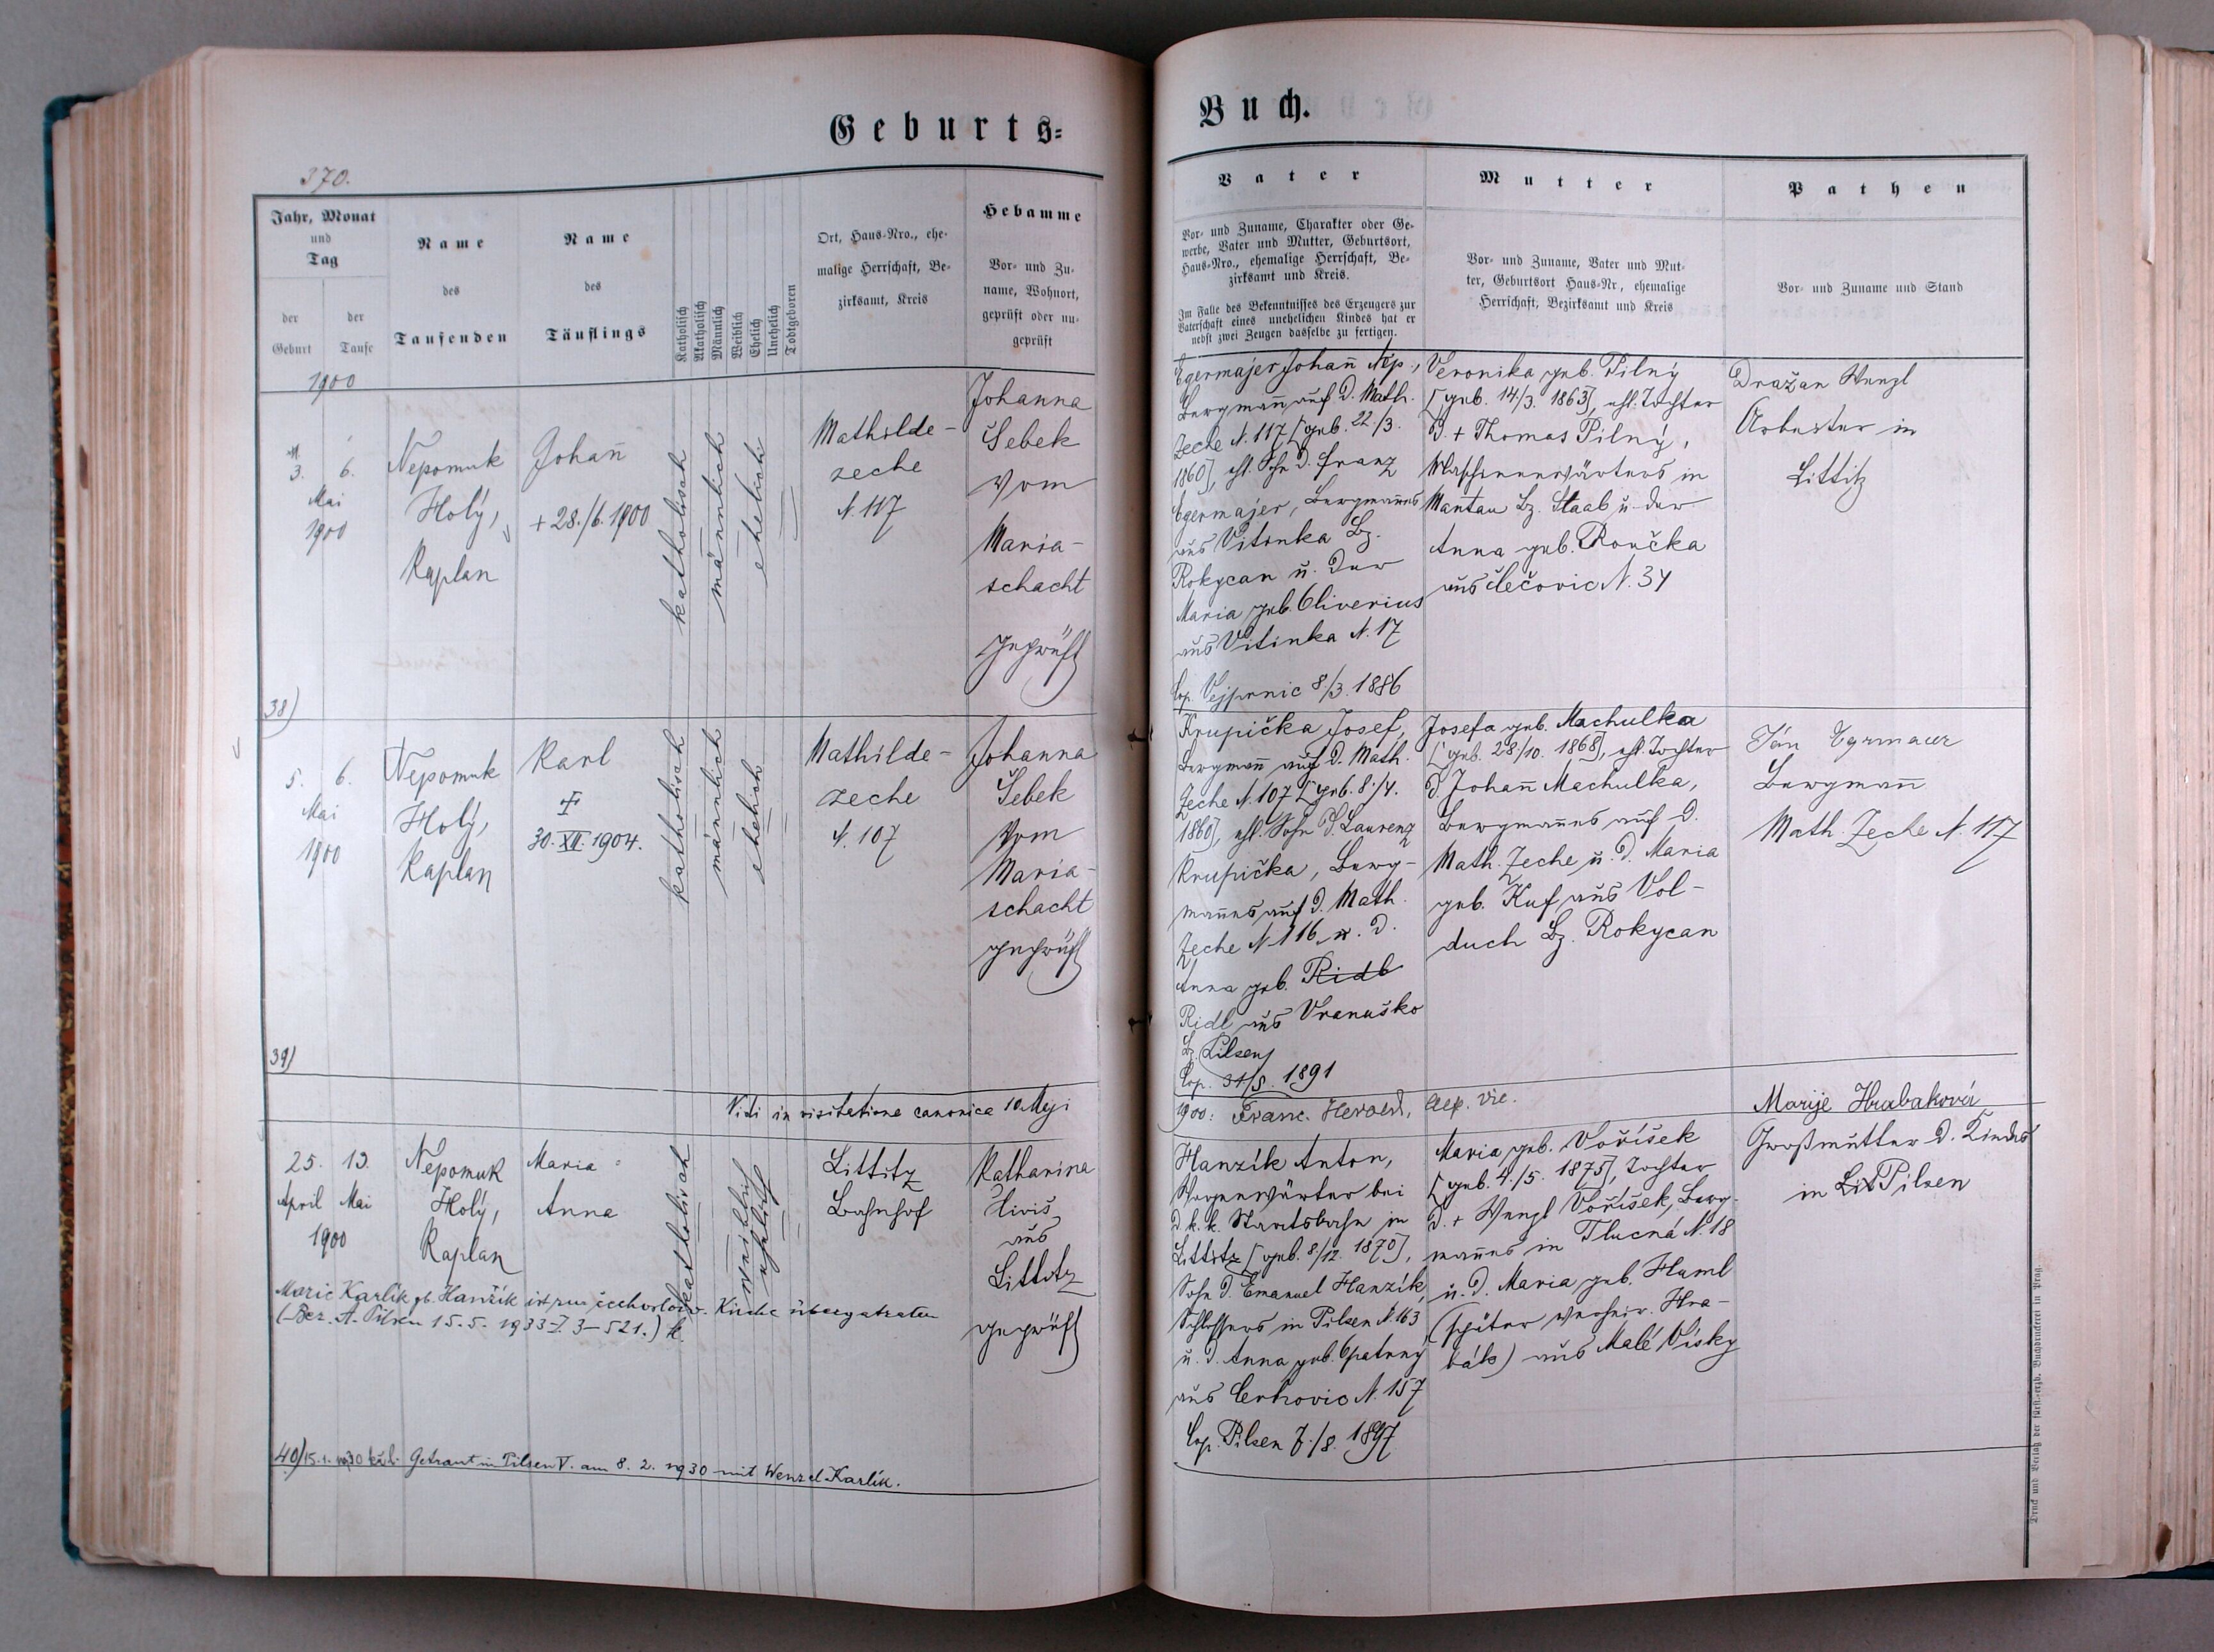 Geburts-
Buch.
370.
Jahr, Monat
und
Tag
der
Geburt
der
Taufe
Name
des
Taufenden
Name
des
Täuflings
Katholisch
Akatholisch
Männlich
Weiblich
Ehelich
Unehelich
Todtgeboren
Ort, Haus-Nro., ehe-
malige Herrschaft, Be-
zirksamt, Kreis
Hebamme
Vor- und Zu-
name, Wohnort,
geprüft oder un-
geprüft
Vater
Vor- und Zuname, Charakter oder Ge-
werbe, Vater und Mutter, Geburtsort,
Haus-Nro., ehemalige Herrschaft, Be-
zirksamt und Kreis.
Im Falle des Bekenntnisses des Erzeugers zur
Vaterschaft eines unehelichen Kindes hat er
nebst zwei Zeugen dasselbe zu fertigen.
Mutter
Vor- und Zuname, Vater und Mut-
ter, Geburtsort Haus-Nr, ehemalige
Herrschaft, Bezirksamt und Kreis
Pathen
Vor- und Zuname und Stand
1900
3. 6.
Mai
1900
Nepomuk
Holý,
Kaplan
Johan̄
+ 28./6. 1900
katholisch
männlich
ehelich
Mathilde-
zeche
N. 117
Johanna
Šebek
vom
Maria-
schacht
geprüft
Egermajer Johan̄ Nep.,
Bergman̄ auf d. Math.
Zeche N. 117 [geb. 22./3.
1860], ehl. Sohn d. Franz
Egermajer, Bergman̄es
aus Vitinka Bz.
Rokycan u. der
Maria geb. Oliverius
aus Vitinka N. 17
Cop. Vejprnic 8/3. 1886
Veronika geb. Pilný
[geb. 14/3. 1863], ehl. Tochter
d. + Thomas Pilný,
Maschinenwärters in
Mantau Bz. Staab u. der
Anna geb. Roučka
aus Lečovic N. 34
Dražan Wenzl
Arbeiter in
Littitz
38)
5. 6.
Mai
1900
Nepomuk
Holý,
Kaplan
Karl
30. XII. 1904.
katholisch
männlich
ehelich
Mathilde-
zeche
N. 107
Johanna
Šebek
vom
Maria-
schacht
geprüft
Krupička Josef,
Bergman̄ auf d. Math.
Zeche N. 107 [geb. 8./4.
1860], ehl. Sohn d. Laurenz
Krupička, Berg-
man̄es auf d. Math.
Zeche N 116 u. d.
Anna geb. Ridb
Ridl aus Vranuško
Bz. Pilsen
Cop. 31/5. 1891
Josefa geb. Machulka
[geb. 28./10. 1868], ehl. Tochter
d. Johan̄ Machulka,
Bergman̄es auf d.
Math. Zeche u. d. Maria
geb. Kuf aus Vol-
duch Bz. Rokycan
Ján Egrmaier
Bergman̄
Math. Zeche N. 117
39)
Vidi in visitatione canonica 10 Maji
1900: Franc. Herold,
25. 13.
April Mai
1900
Nepomuk
Holý,
Kaplan
Maria
Anna
katholisch
weiblich
ehelich
Littitz
Bahnhof
Katharina
Hiviš
aus
Littitz
geprüft
Hanzík Anton,
bei
d. k. k. Staatsbahn in
Littitz [geb. 8./12. 1870],
Sohn d. Emanuel Hanzík,
Schlossers in Pilsen N. 163
u. d. Anna geb. Opatrný
aus Cerhovic N. 157
Cop. Pilsen 7./8. 1897
Maria geb. Voříšek
[geb. 4./5. 1875], Tochter
d. + Wenzl Voříšek, Berg-
man̄es in Tlucná N. 18
u. d. Maria geb. Huml
(später verheir. Hra-
bák) aus Malé Vísky
Marije Hrabaková
Großmutter d. Kindes
in Lit Pilsen
Marie Karlík gb. Hanzík ist zur čechoslow. Kirche übergetreten
(Bez. A. Pilsen 15. 5. 1933 – I. 3 – 521.) k.
40) 15. 1. 1930 Getraut in Pilsen V. am 8. 2. 1930 mit Wenzel Karlík.
Druck und Verlag der fürst-erzb. Buchdruckerei in Prag.